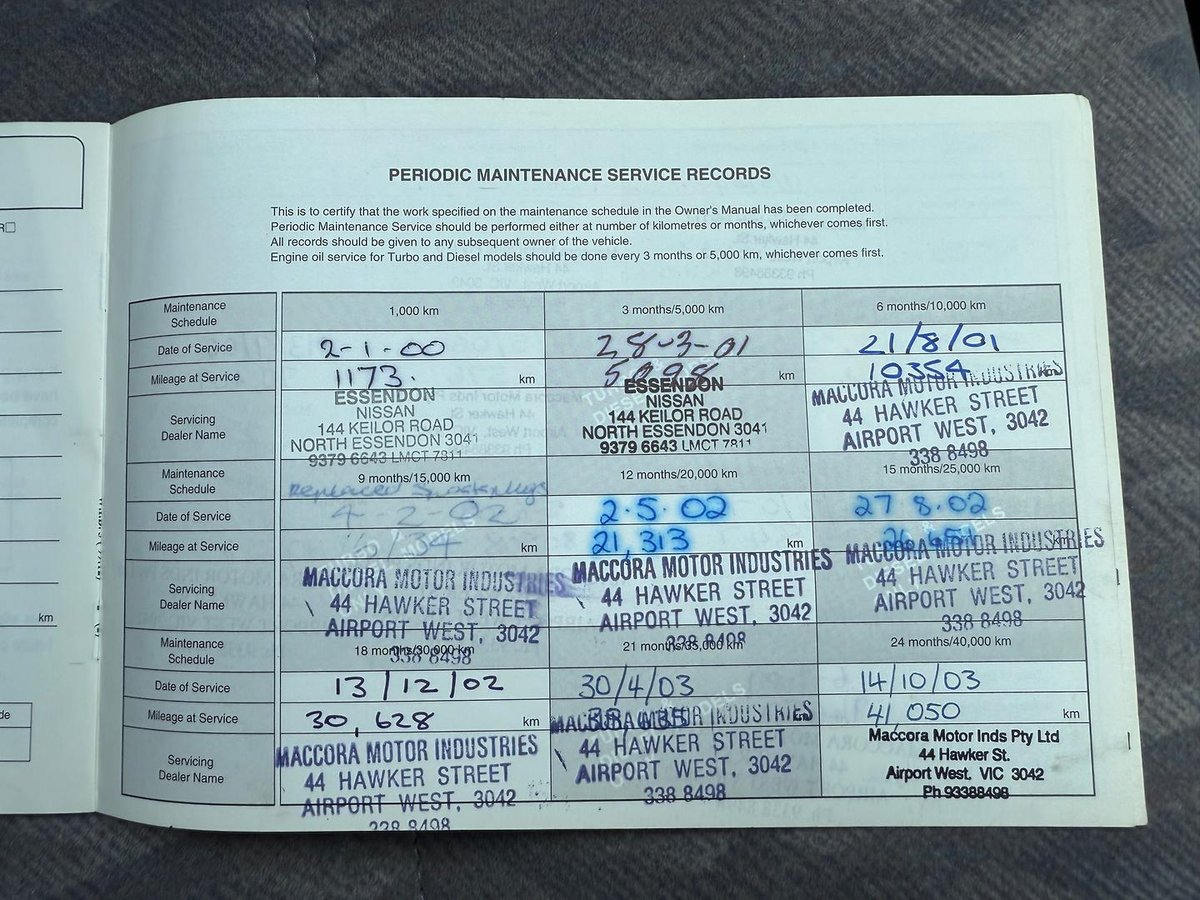 PERIODIC MAINTENANCE SERVICE RECORDS
This is to certify that the work specified on the maintenance schedule in the Owner's Manual has been completed.
Periodic Maintenance Service should be performed either at number of kilometres or months, whichever comes first.
All records should be given to any subsequent owner of the vehicle.
Engine oil service for Turbo and Diesel models should be done every 3 months or 5,000 km, whichever comes first.
Maintenance Schedule 1,000 km 3 months/5,000 km 6 months/10,000 km
Date of Service 2-1-00 28-3-01 21/8/01
Mileage at Service 1173. km 5098 km 10354
Servicing Dealer Name
ESSENDON
NISSAN
144 KEILOR ROAD
NORTH ESSENDON 3041
9379 6643 LMCT 7811
ESSENDON
NISSAN
144 KEILOR ROAD
NORTH ESSENDON 3041
9379 6643 LMCT 7811
MACCORA MOTOR INDUSTRIES
44 HAWKER STREET
AIRPORT WEST, 3042
338 8498
Maintenance Schedule 9 months/15,000 km 12 months/20,000 km 15 months/25,000 km
Replaced
Date of Service 4-2-02 2.5.02 27 8.02
Mileage at Service km 21,313 km
Servicing Dealer Name
MACCORA MOTOR INDUSTRIES
44 HAWKER STREET
AIRPORT WEST, 3042
338 8498
MACCORA MOTOR INDUSTRIES
44 HAWKER STREET
AIRPORT WEST, 3042
338 8498
MACCORA MOTOR INDUSTRIES
44 HAWKER STREET
AIRPORT WEST, 3042
338 8498
Maintenance Schedule 18 months/30,000 km 21 months/35,000 km 24 months/40,000 km
Date of Service 13/12/02 30/4/03 14/10/03
Mileage at Service 30,628 km 41,050 km
Servicing Dealer Name
MACCORA MOTOR INDUSTRIES
44 HAWKER STREET
AIRPORT WEST, 3042
338 8498
MACCORA MOTOR INDUSTRIES
44 HAWKER STREET
AIRPORT WEST, 3042
338 8498
Maccora Motor Inds Pty Ltd
44 Hawker St.
Airport West. VIC 3042
Ph 93388498
km